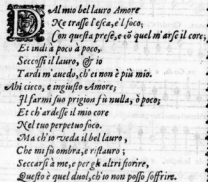 DAl mio bel lauro Amore
Ne trasse l'esca, e'l foco;
Con questa prese, e cō quel m'arse il core;
Et indi à poco à poco,
Seccossi il lauro, & io
Tardi m'auedo, ch'ei non è più mio.
Ahi cieco, e ingiusto Amore;
Il farmi suo prigion fù nulla, ò poco;
Et ch'ardesse il mio core
Nel tuo perpetuo foco.
Ma ch'io veda il bel lauro,
Che mi fù ombra, e ristauro;
Seccarsi à me, e per gli altri fiorire,
Questo è quel duol, ch'io non posso soffrire.